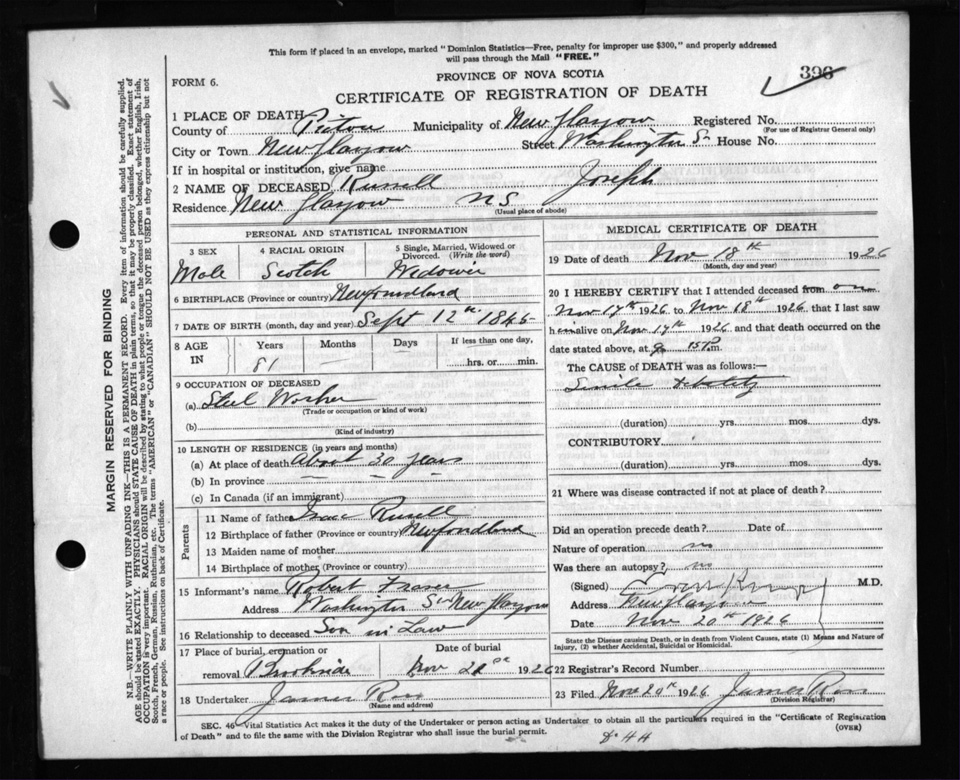 This form if placed in an envelope, marked "Dominion Statistics—Free, penalty for improper use $300," and properly addressed
will pass through the Mail "FREE."
396
FORM 6.
PROVINCE OF NOVA SCOTIA
CERTIFICATE OF REGISTRATION OF DEATH
1 PLACE OF DEATH
County of Pictou Municipality of New Glasgow Registered No.
(For use of Registrar General only)
City or Town New Glasgow Street Washington St House No.
If in hospital or institution, give name
2 NAME OF DECEASED Russell Joseph
Residence New Glasgow NS
(Usual place of abode)
PERSONAL AND STATISTICAL INFORMATION
3 SEX 4 RACIAL ORIGIN 5 Single, Married, Widowed or
Divorced. (Write the word)
Male Scotch Wedower
6 BIRTHPLACE (Province or country) Newfoundland
7 DATE OF BIRTH (month, day and year) Sept 12th 1845
8 AGE IN Years Months Days If less than one day,
81 hrs. or min.
9 OCCUPATION OF DECEASED
(a) Steel Worker
(Trade or occupation or kind of work)
(b)
(Kind of industry)
10 LENGTH OF RESIDENCE (in years and months)
(a) At place of death About 30 years
(b) In province
(c) In Canada (if an immigrant)
Parents
11 Name of father Isaac Russell
12 Birthplace of father (Province or country) Newfondland
13 Maiden name of mother
14 Birthplace of mother (Province or country)
15 Informant's name Robert Fraser
Address Washington St New Glasgow
16 Relationship to deceased Son in Law
17 Place of burial, cremation or Date of burial
removal Brookside Nov 1926
18 Undertaker James Ross
(Name and address)
MEDICAL CERTIFICATE OF DEATH
19 Date of death Nov 18th 1926
(Month, day and year)
20 I HEREBY CERTIFY that I attended deceased from on
Nov 17th 1926 to Nov 18th 1926, that I last saw
him alive on Nov 17th 1926 and that death occurred on the
date stated above, at 9 15 P m.
The CAUSE OF DEATH was as follows:—
Senile debility
(duration) yrs. mos. dys.
CONTRIBUTORY
(duration) yrs. mos. dys.
21 Where was disease contracted if not at place of death?
Did an operation precede death? Date of
Nature of operation no
Was there an autopsy? no
(Signed) M.D.
Address New Glasgow
Date Nov 20th 1926
State the Disease causing Death, or in death from Violent Causes, state (1) Means and Nature of
Injury, (2) whether Accidental, Suicidal or Homicidal.
22 Registrar's Record Number
23 Filed Nov 20th 1926 James Ross
(Division Registrar)
SEC. 46—Vital Statistics Act makes it the duty of the Undertaker or person acting as Undertaker to obtain all the particulars required in the "Certificate of Registration
of Death" and to file the same with the Division Registrar who shall issue the burial permit.
(OVER)
MARGIN RESERVED FOR BINDING
N.B.—WRITE PLAINLY WITH UNFADING INK—THIS IS A PERMANENT RECORD. Every item of information should be carefully supplied.
AGE should be stated EXACTLY. PHYSICIANS should STATE CAUSE OF DEATH in plain terms, so that it may be properly classified. Exact statement of
OCCUPATION is very important. RACIAL ORIGIN will be described by stating to what people or tongue the deceased person belonged, whether English, Irish,
Scotch, French, German, Russian, Ruthenian, etc. The terms "AMERICAN" or "CANADIAN" SHOULD NOT BE USED as they express citizenship but not
a race or people. See instructions on back of Certificate.